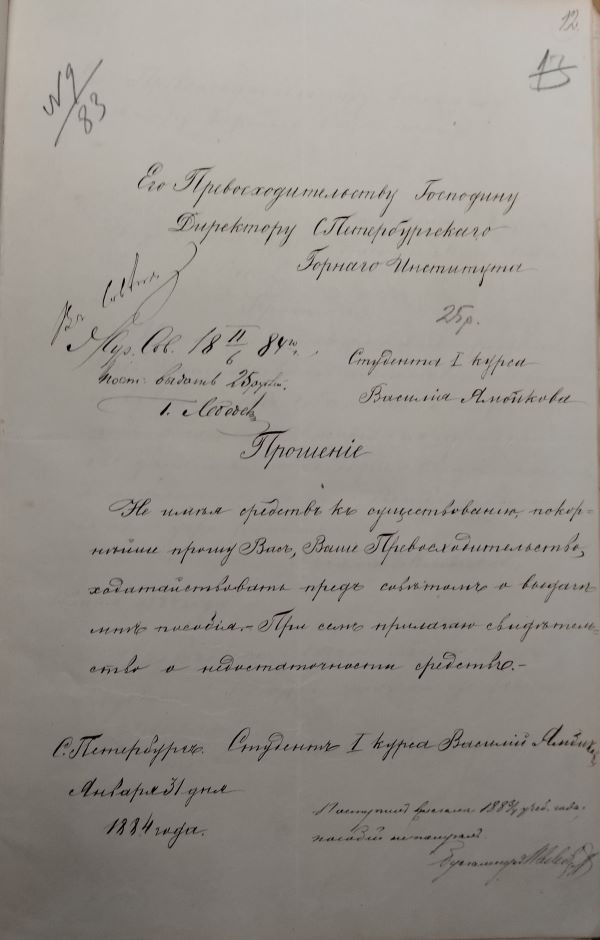 12
13
№ 9/83
Его Превосходительству Господину
Директору С.Петербургскаго
Горнаго Института
Въ Совѣтъ
25 р.
Жур. Сов. 18 II/6 84 го.
пост. выдать 25 рублей.
Г. Лебедев
Студента I курса
Василія
Прошеніе
Не имѣя средствъ къ существованію, покор-
нѣйше прошу Васъ, Ваше Превосходительство,
ходатайствовать предъ совѣтомъ о выдачѣ
мнѣ пособія.- При семъ прилагаю свидѣтель-
ство о недостаточности средствъ.-
С.Петербургъ. Студентъ I курса Василій
Января 31 дня
1884 года.
Поступилъ въ началѣ 1883/4 учеб. года,
пособій не получалъ.
Бухгалтеръ